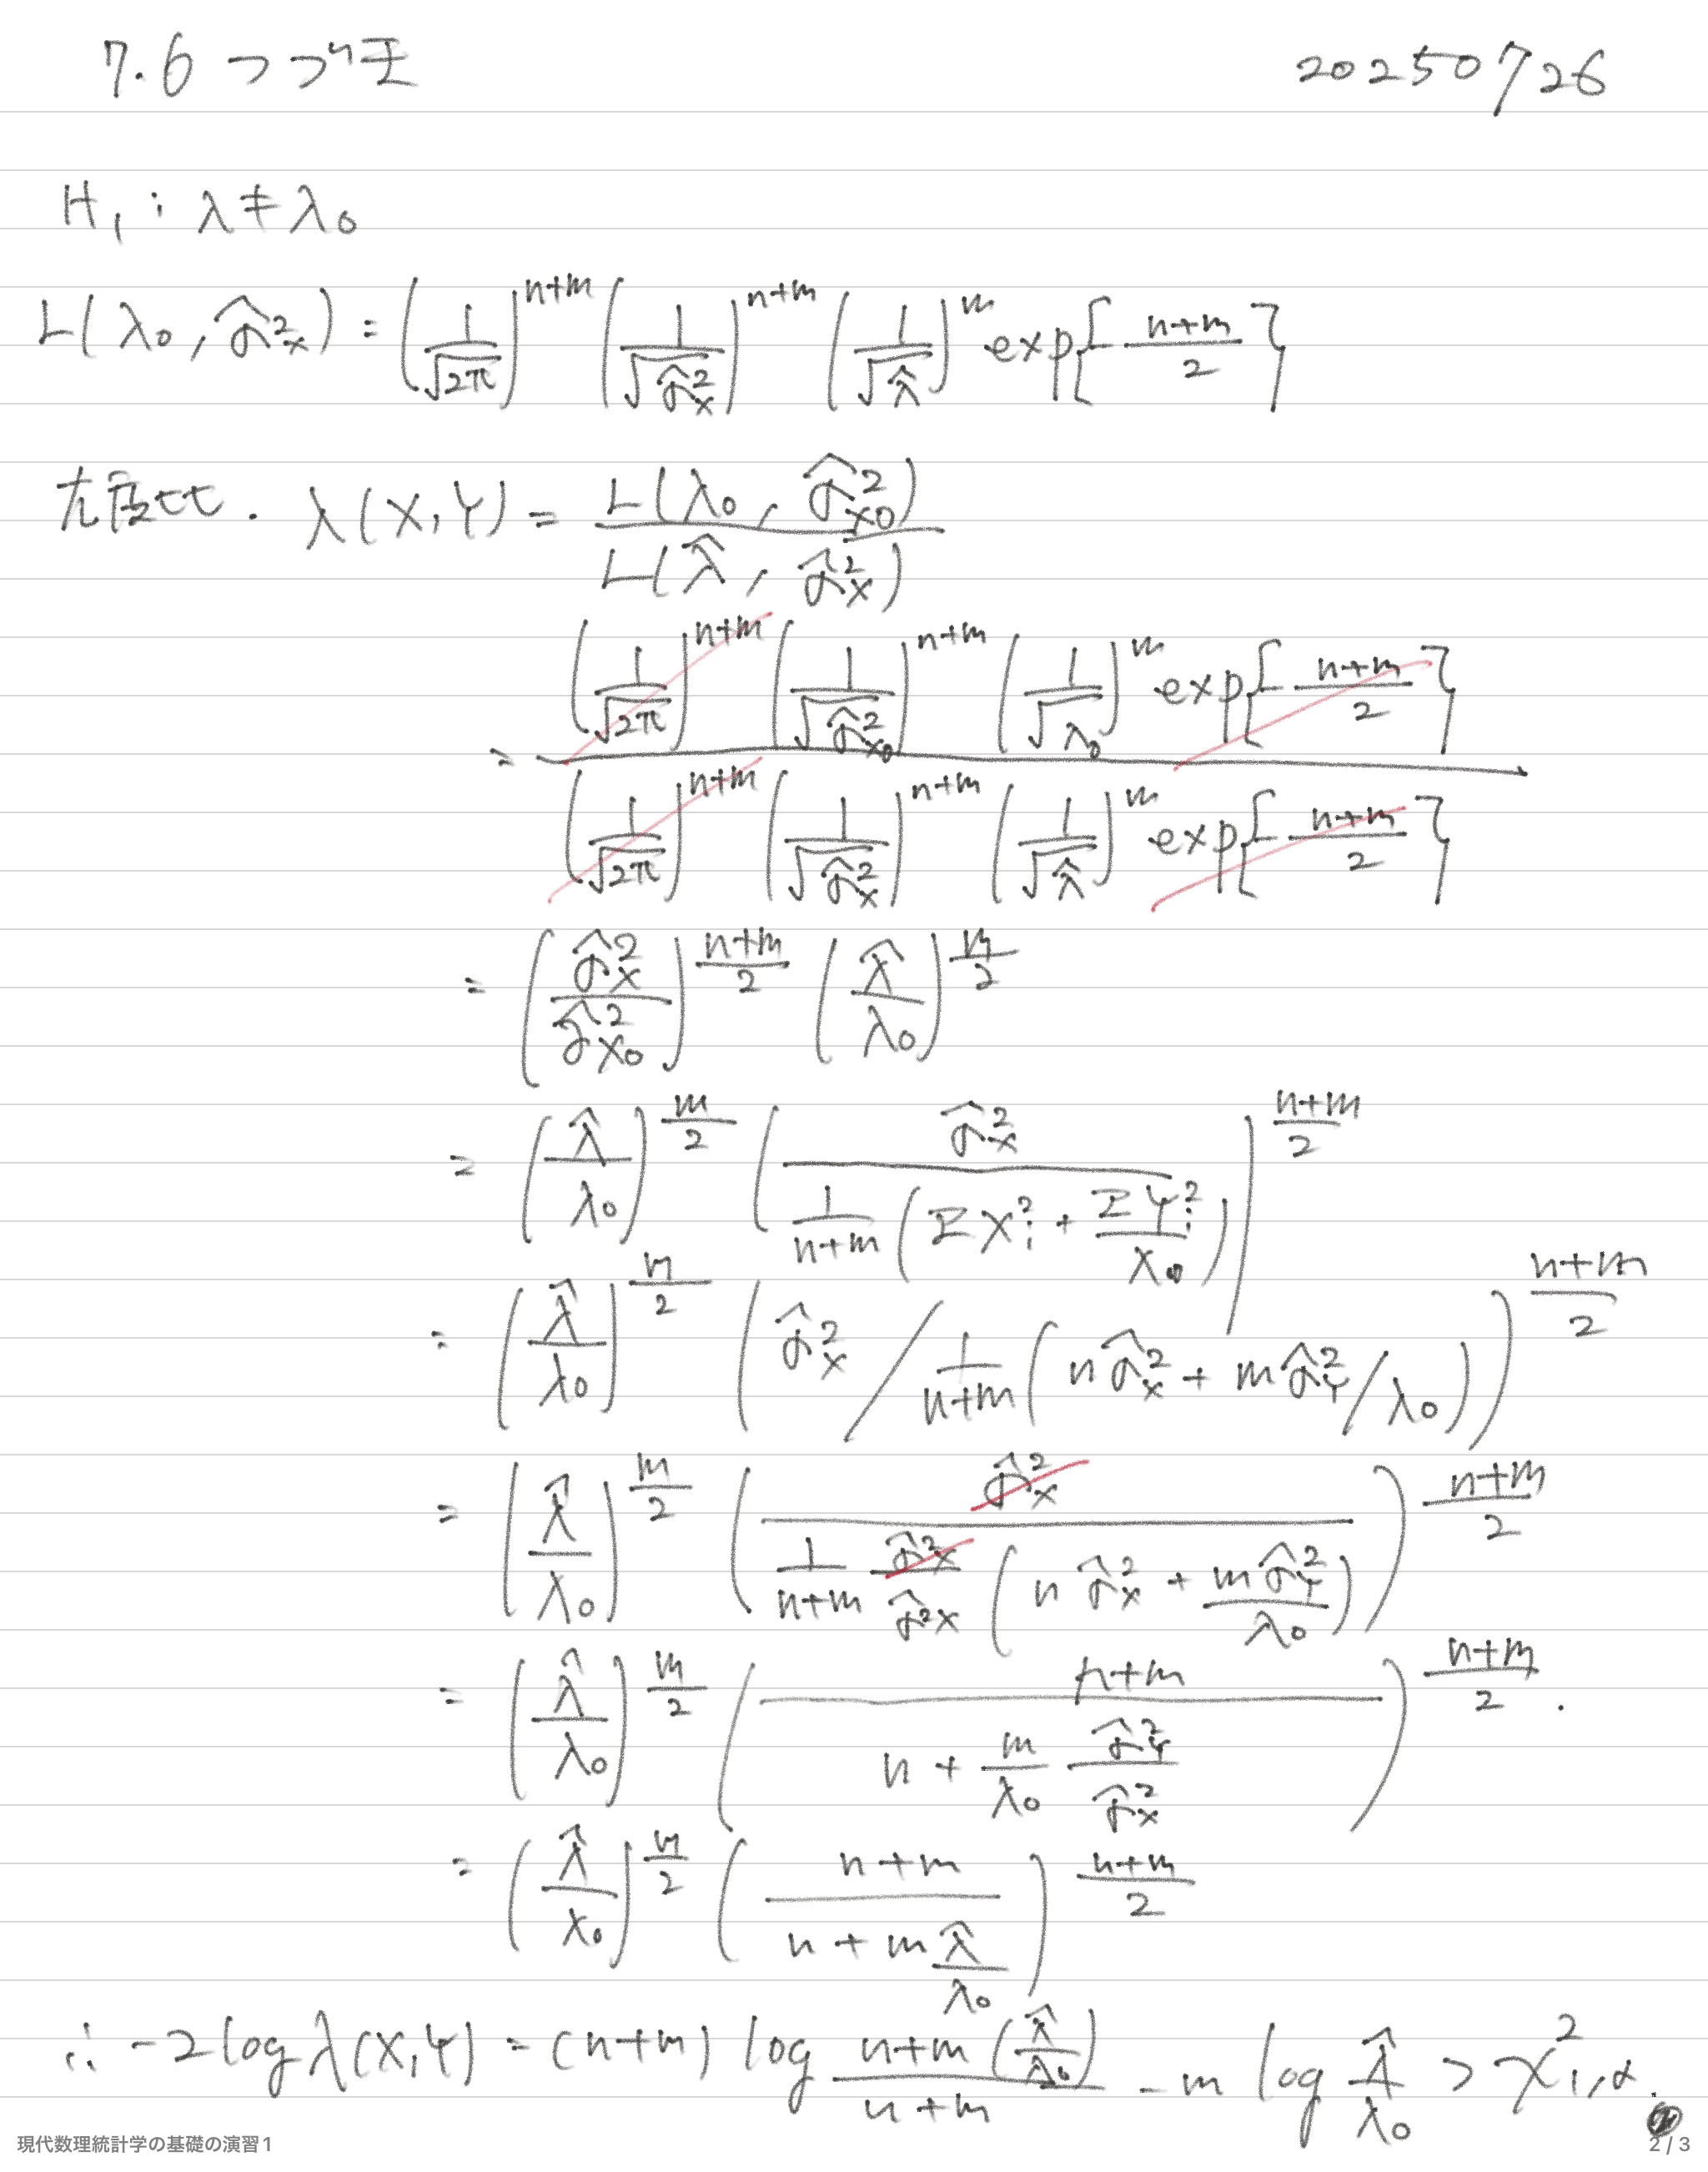 7.6 つづき 20250726
H₁ : λ ≠ λ₀
L(λ₀, σ̂²_x) = (1/√2π)^{n+m} (1/√σ̂²_x)^{n+m} (1/√λ̂)^m exp[-(n+m)/2]
尤度比. λ(X,Y) = L(λ₀, σ̂²_{x0}) / L(λ̂, σ̂²_x)
= (1/√2π)^{n+m} (1/√σ̂²_{x0})^{n+m} (1/√λ₀)^m exp[-(n+m)/2] / (1/√2π)^{n+m} (1/√σ̂²_x)^{n+m} (1/√λ̂)^m exp[-(n+m)/2]
= (σ̂²_x / σ̂²_{x0})^{(n+m)/2} (λ̂/λ₀)^{m/2}
= (λ̂/λ₀)^{m/2} (σ̂²_x / 1/(n+m) (ΣX_i² + ΣY_i²/λ₀))^{(n+m)/2}
= (λ̂/λ₀)^{m/2} (σ̂²_x / 1/(n+m) (nσ̂²_x + mσ̂²_Y/λ₀))^{(n+m)/2}
= (λ̂/λ₀)^{m/2} (σ̂²_x / 1/(n+m) σ̂²_x/σ̂²_x (nσ̂²_x + mσ̂²_Y/λ₀))^{(n+m)/2}
= (λ̂/λ₀)^{m/2} ((n+m) / (n + m/λ₀ σ̂²_Y/σ̂²_x))^{(n+m)/2}.
= (λ̂/λ₀)^{m/2} ((n+m) / (n + m λ̂/λ₀))^{(n+m)/2}
∴ -2 log λ(X,Y) = (n+m) log (n+m(λ̂/λ₀))/(n+m) - m log λ̂/λ₀ > χ²_{1,α}.
現代数理統計学の基礎の演習1
2 / 3